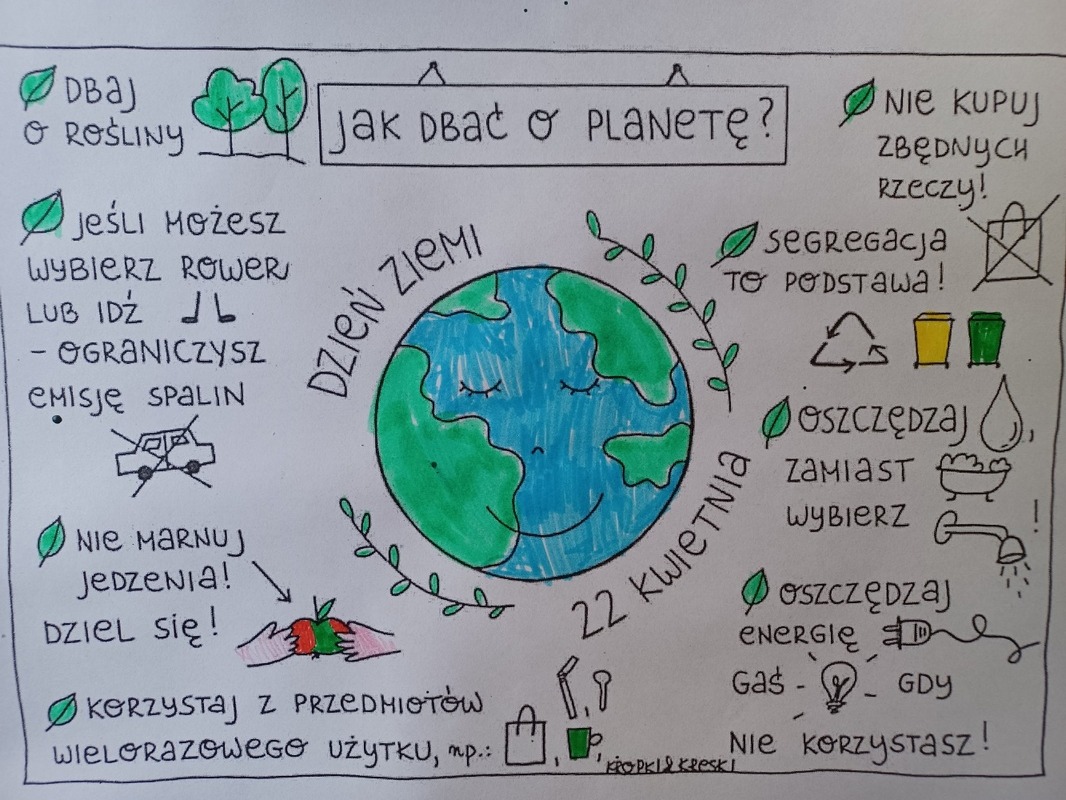 JAK DBAĆ O PLANETĘ?
DBAJ
O ROŚLINY
JEŚLI MOŻESZ
WYBIERZ ROWER
LUB IDŹ
- OGRANICZYSZ
EMISJĘ SPALIN
NIE MARNUJ
JEDZENIA!
DZIEL SIĘ!
KORZYSTAJ Z PRZEDMIOTÓW
WIELORAZOWEGO UŻYTKU, np.: , , ,
DZIEŃ ZIEMI
22 KWIETNIA
NIE KUPUJ
ZBĘDNYCH
RZECZY!
SEGREGACJA
TO PODSTAWA!
OSZCZĘDZAJ ,
ZAMIAST
WYBIERZ !
OSZCZĘDZAJ
ENERGIĘ
GAŚ - - GDY
NIE KORZYSTASZ!
KROPKI&KRESKI